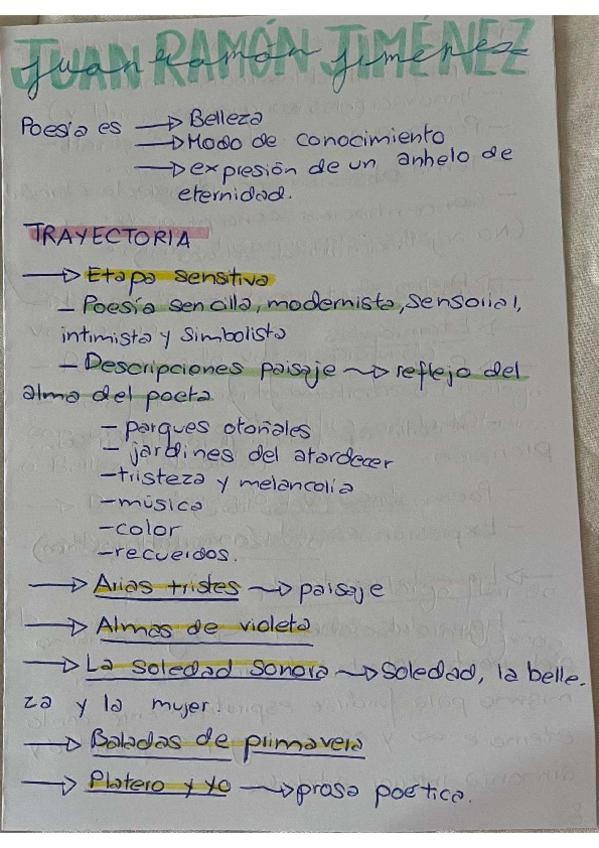 JUAN RAMÓN JIMÉNEZ
Juan Ramón Jiménez
Poesía es → Belleza
→ Modo de conocimiento
→ expresión de un anhelo de
eternidad.
TRAYECTORIA
→ Etapa sensitiva
- Poesía sencilla, modernista, sensorial,
intimista y simbolista
- Descripciones paisaje → reflejo del
alma del poeta
- parques otoñales
- jardines del atardecer
- tristeza y melancolía
- música
- color
- recuerdos.
→ Arias tristes → paisaje
→ Almas de violeta
→ La soledad sonora → soledad, la belle.
za y la mujer.
→ Baladas de primavera
→ Platero y yo → prosa poética.